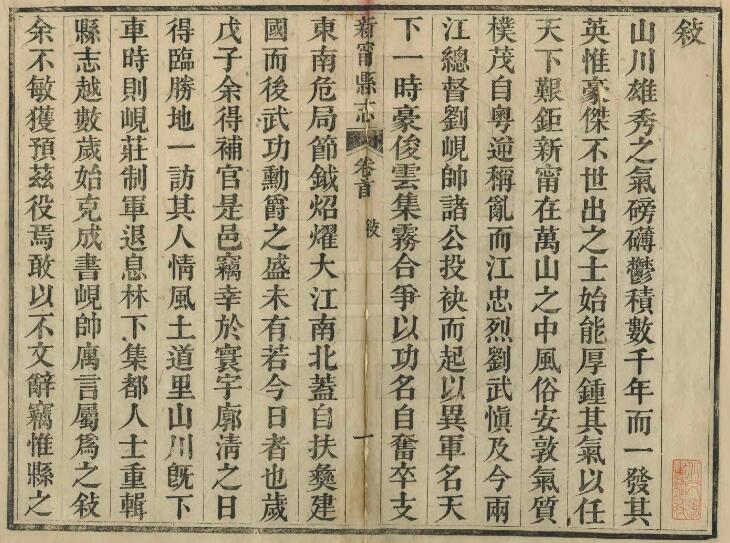 敍
山川雄秀之氣磅礴鬱積數千年而一發其
英惟豪傑不世出之士始能厚鍾其氣以任
天下艱鉅新甯在萬山之中風俗安敦氣質
樸茂自粵逆稱亂而江忠烈劉武愼及今兩
江總督劉峴帥諸公投袂而起以異軍名天
下一時豪俊雲集霧合爭以功名自奮卒支
新甯縣志
卷首
敍
一
東南危局節鉞炤燿大江南北蓋自扶彝建
國而後武功勳爵之盛未有若今日者也歲
戊子余得補官是邑竊幸於寰宇廓清之日
得臨勝地一訪其人情風土道里山川旣下
車時則峴莊制軍退息林下集都人士重輯
縣志越數歲始克成書峴帥厲言屬爲之敍
余不敏獲預茲役焉敢以不文辭竊惟縣之